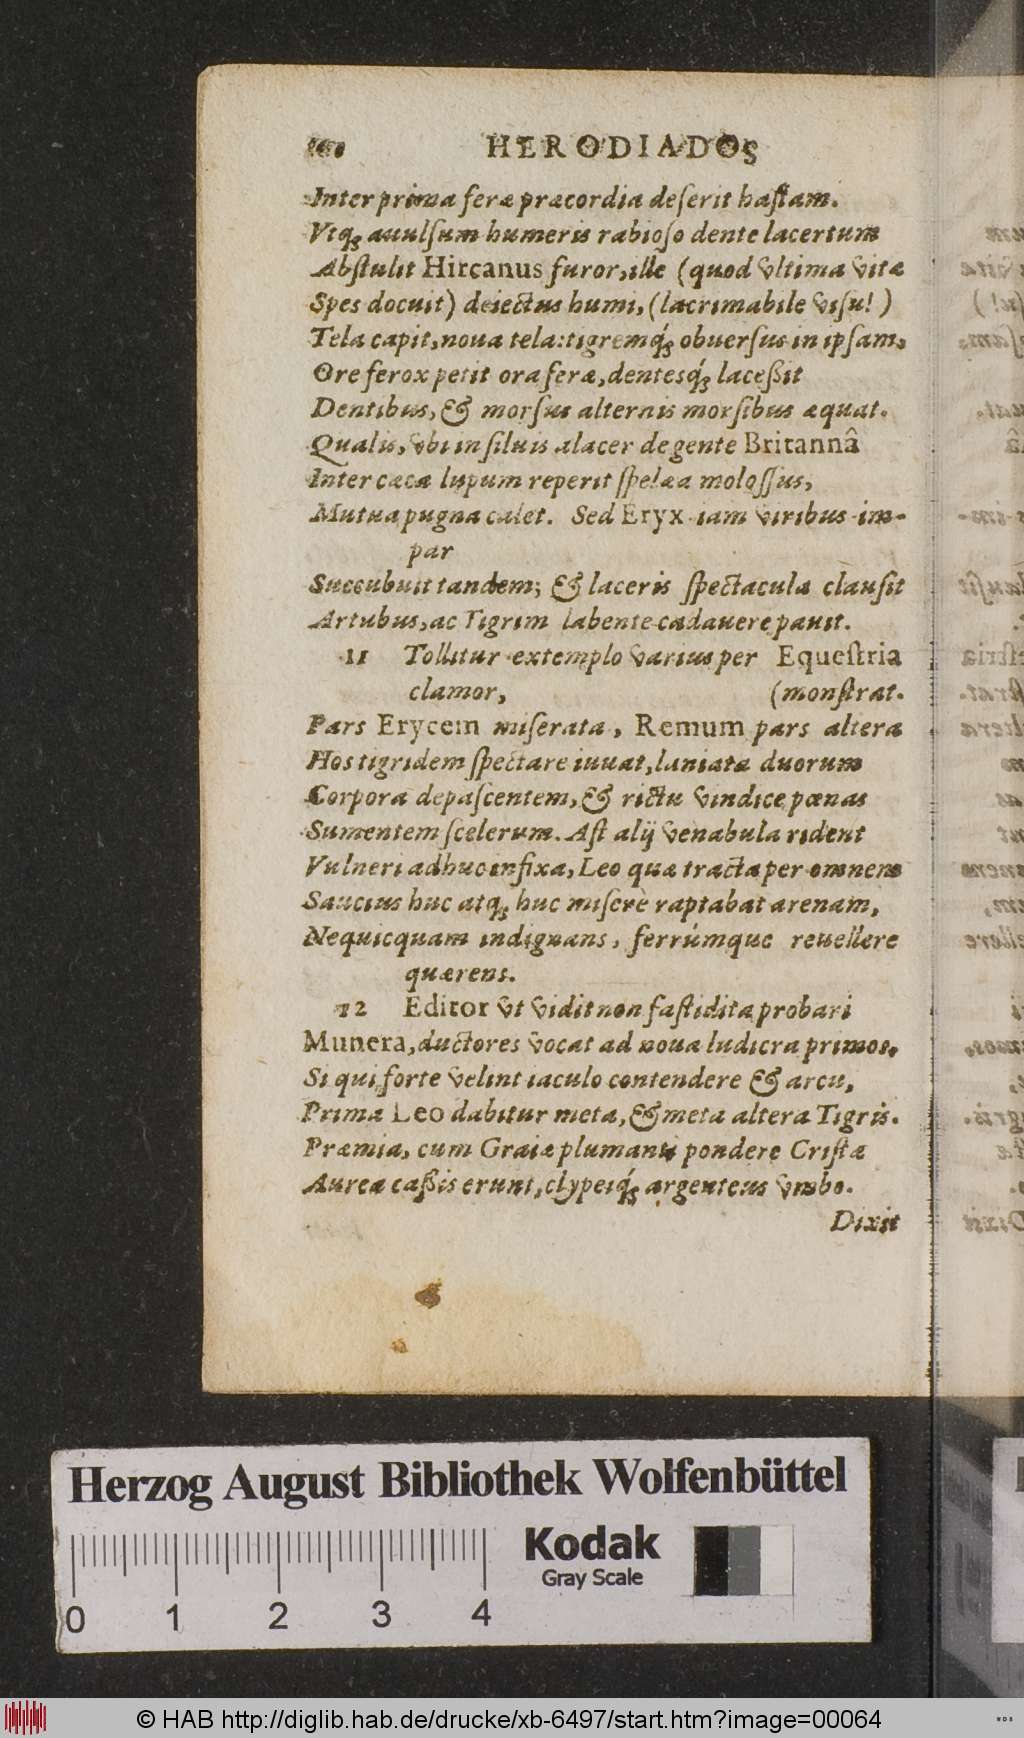 HERODIADOS
Inter prima feræ præcordia deserit hastam.
Vtq; auulsum humeris rabioso dente lacertum
Abstulit Hircanus furor, ille (quod vltima vitæ
Spes docuit) deiectus humi, (lacrimabile visu!)
Tela capit, noua tela: tigremq́; obuersus in ipsam,
Ore ferox petit ora feræ, dentesq́; lacessit
Dentibus, & morsus alternis morsibus æquat.
Qualis, vbi in siluis alacer de gente Britannâ
Inter cæca lupum reperit spelæa molossus,
Mutua pugna calet. Sed Eryx iam viribus im-
par
Succubuit tandem; & laceris spectacula clausit
Artubus, ac Tigrim labente cadauere pauit.
11 Tollitur extemplo varius per Equestria
clamor, (monstrat.
Pars Erycem miserata, Remum pars altera
Hos tigridem spectare iuuat, laniata duorum
Corpora depascentem, & rictu vindice pœnas
Sumentem scelerum. Ast alij venabula rident
Vulneri adhuc infixa, Leo quæ tracta per omnem
Saucius huc atq; huc miserè raptabat arenam,
Nequicquam indignans, ferrúmque reuellere
quærens.
12 Editor vt vidit non fastidita probari
Munera, ductores vocat ad noua ludicra primos,
Si qui forte velint iaculo contendere & arcu,
Prima Leo dabitur meta, & meta altera Tigris.
Præmia, cum Graiæ plumanti pondere Cristæ
Aurea cassis erunt, clypeiq́; argenteus vmbo.
Dixit
Herzog August Bibliothek Wolfenbüttel
Kodak
Gray Scale
0 1 2 3 4
© HAB http://diglib.hab.de/drucke/xb-6497/start.htm?image=00064